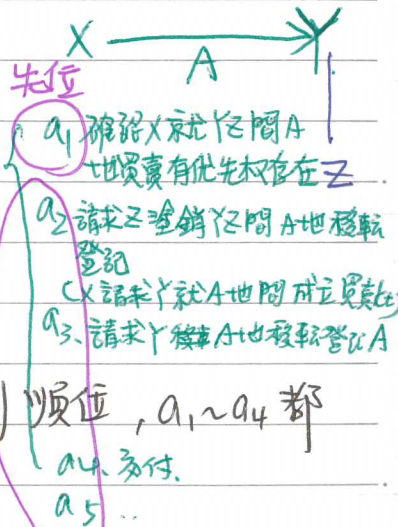 X → Y
A
先位
a1 確認X就YZ間A
地買賣有优先权存在 Z
a2 請求Z塗銷YZ間A地移転
登記
(X請求Y就A地間成立買賣
a3、請求Y A地移転登記A
順位，a1~a4都
a4、交付.
a5 ..